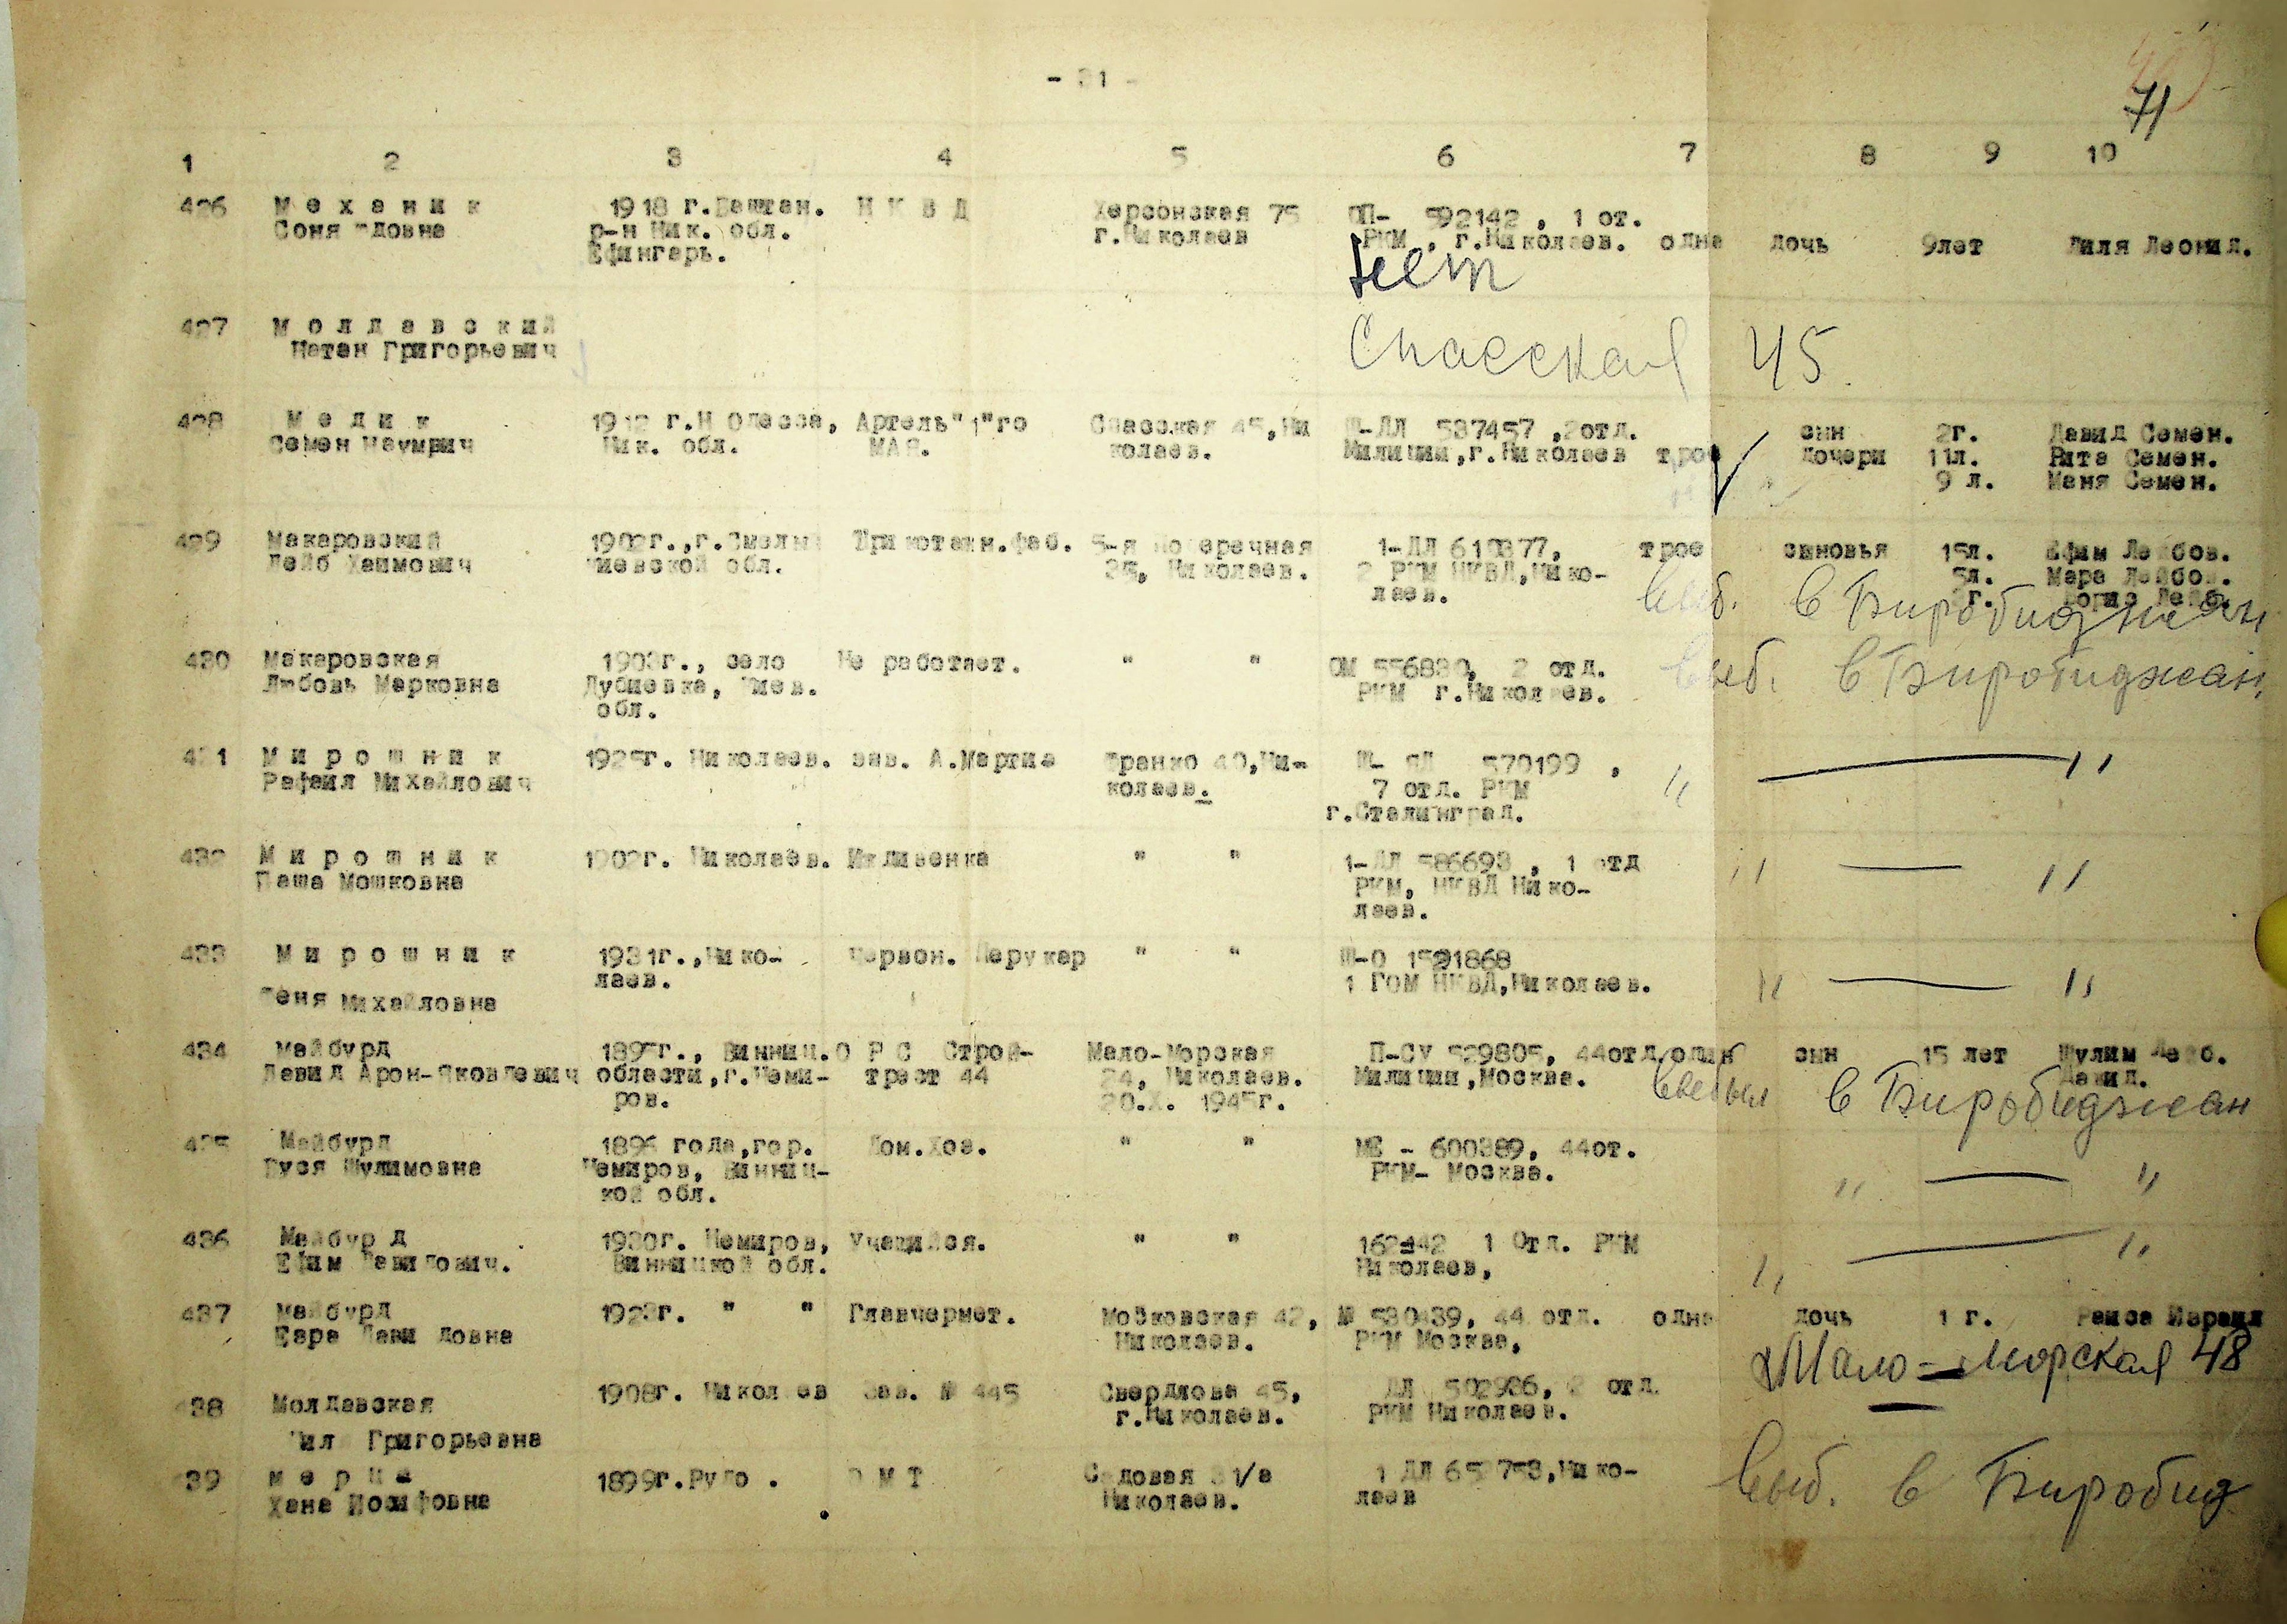 - 31 -
71
1 2 3 4 5 6 7 8 9 10
426 М е х а н и к 1918 г.Баштан. Н К В Д Херсонская 75 592142 , 1 от.
Соня р-н Ник. обл. г.Николаев РКМ , г.Николаев. одна дочь 9лет Лиля Леонид.
Ефингарь.
нет
427 М о л д а в с к и й
Натан Григорьевич
Спасская 45.
428 М е д и к 1912 г.Н Одесса, Артель"1"го Спасская 45,Ни 537457 ,2отд. сын 2г. Давид Семен.
Семен Наумвич Ник. обл. МАЯ. колаев. Милиции,г.Николаев трое дочери 11л. Рита Семен.
" 9 л. Маня Семен.
429 Макаровский 1902г.,г.Смела Трикотажн.фаб. 5-я Поперечная 1-ЛЛ трое сыновья 15л. Ефим Лейбов.
Лейб Хаимович Киевской обл. 35, Николаев. 2 РКМ НКВД,Нико- 5л. Мара Лейбов.
лаев. г. Борис Лейб.
выб. в Биробиджан
430 Макаровская 1903г., село Не работает. " " ОМ 2 отд.
Любовь Марковна Дубиевка, Киев. РКМ г.Николаев.
обл.
выб. в Биробиджан
431 М и р о ш н и к 1925г. Николаев. зав. А.Марти Франко 40,Ни- 570199 , " — "
Рафаил Михайлович колаев. 7 отд. РКМ
г.Сталинград.
432 М и р о ш н и к 1902г. Николаев. " " 586693 , 1 отд " — "
Паша Мошковна РКМ, НКВД Нико-
лаев.
433 М и р о ш н и к 1931г.,Нико- Червон. Перукар " " 1591868 " — "
лаев. 1 ГОМ НКВД,Николаев.
Михайловна
434 Майбурд 1895г., Винниц. О Р С Строй- Мало-Морская П-СУ 529805, 44отд один сын 15 лет Шулим Лейб.
Давид Арон-Яковлевич области,г.Неми- трест 44 24, Николаев. Милиции,Москва. Давид.
ров. 20.X. 1945г.
выбыл в Биробиджан
435 Майбурд 1896 года,гор. Дом.Хоз. " " 600389, 44от.
Шулимовна Немиров, Винниц- РКМ- Москва.
кой обл. " — "
436 Майбур д 1930г. Немиров, Учащийся. " " 1 Отд. РКМ
Ефим Давидович. Винницкой обл. Николаев,
" — "
437 Майбурд 1923г. " " Главчермет. Московская 42, № 530439, 44 отд. одна дочь 1 г. Раиса Израил
Сара Давидовна Николаев. РКМ Москва,
Мало-Морская 48
438 Молдавская 1908г. Николаев Зав. № 445 Свердлова 45, ЛЛ 502936, 2 отд.
г.Николаев. РКМ Николаев.
Григорьевна
439 1899г. О М Т Садовая 31/а 1 ЛЛ Нико-
Хана Иосифовна Николаев. лаев
выб. в Биробид